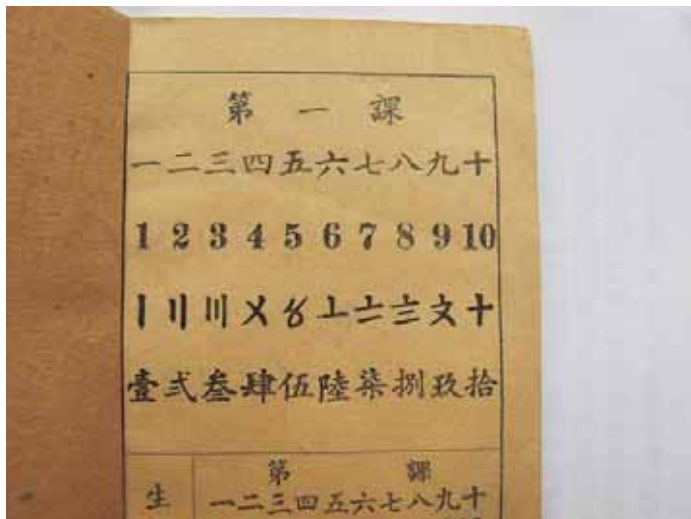 第一課
一二三四五六七八九十
1 2 3 4 5 6 7 8 9 10
〡〢〣〤〥〦〧〨文十
壹弍叁肆伍陸柒捌玖拾
第 課
生
一二三四五六七八九十